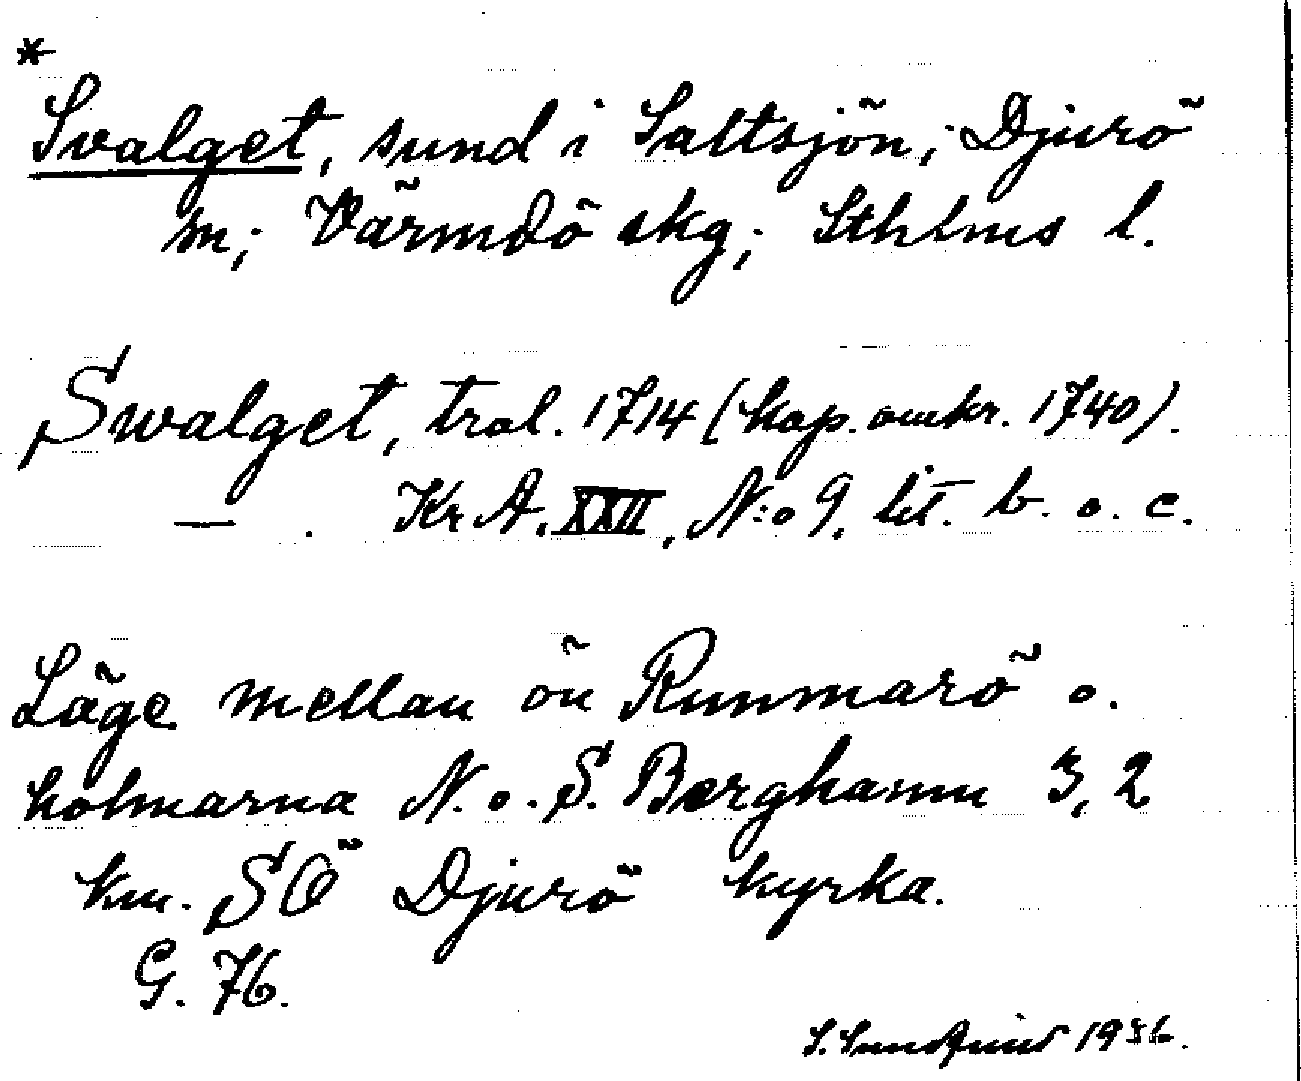 *
Svalget, sund i Saltsjön; Djurö
m; Värmdö skg; Sthlms l.
Swalget, trol. 1714 (kop. omkr. 1740).
— . KrA. XXII, N:o 9. lit. b. o. c.
Läge mellan ön Runmarö o.
holmarna N. o. S. Berghamn 3,2
km. SÖ Djurö kyrka.
G. 76.
S. 1936.